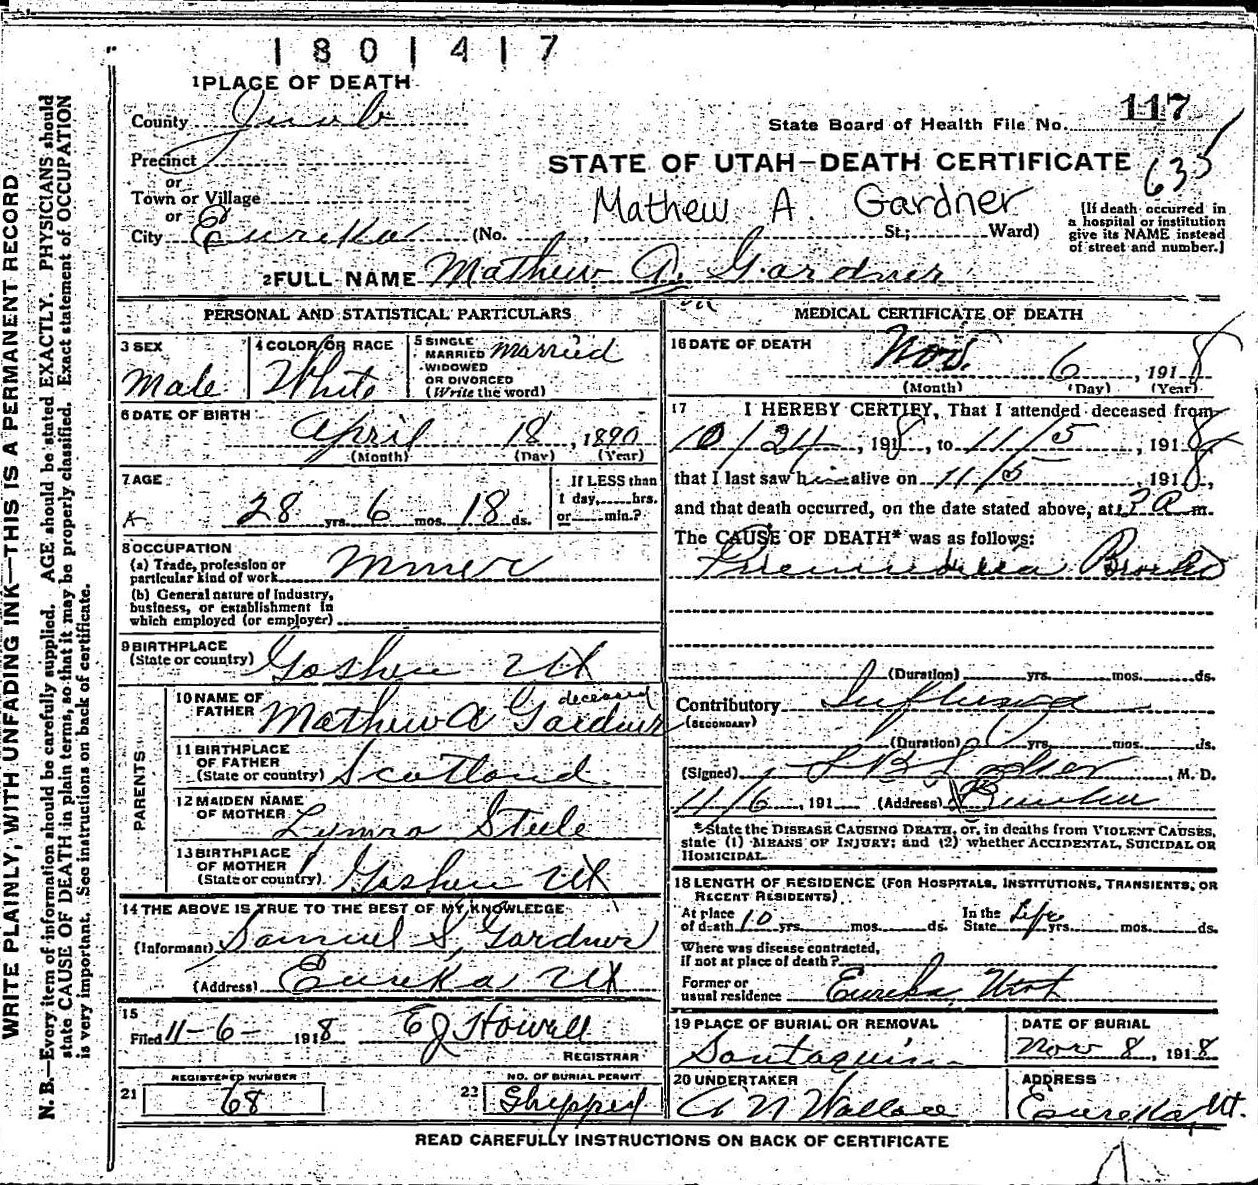 1801417
1 PLACE OF DEATH
County Juab
117
State Board of Health File No.
Precinct
STATE OF UTAH—DEATH CERTIFICATE
635
or
Town or Village
Mathew A. Gardner
or
City Eureka (No. St.; Ward)
[If death occurred in
a hospital or institution
give its NAME instead
of street and number.]
2 FULL NAME Mathew A. Gardner
PERSONAL AND STATISTICAL PARTICULARS
3 SEX
Male
4 COLOR OR RACE
White
5 SINGLE
MARRIED
WIDOWED
OR DIVORCED
(Write the word)
Married
6 DATE OF BIRTH
April 18, 1890
(Month) (Day) (Year)
7 AGE
28 yrs. 6 mos. 18 ds.
If LESS than
1 day, hrs.
or min.?
8 OCCUPATION
(a) Trade, profession or
particular kind of work Miner
(b) General nature of Industry,
business, or establishment in
which employed (or employer)
9 BIRTHPLACE
(State or country) Goshen Ut
PARENTS
10 NAME OF
FATHER Mathew A Gardner
deceased
11 BIRTHPLACE
OF FATHER
(State or country) Scotland
12 MAIDEN NAME
OF MOTHER Steele
13 BIRTHPLACE
OF MOTHER
(State or country) Goshen Ut
14 THE ABOVE IS TRUE TO THE BEST OF MY KNOWLEDGE
(Informant) Samuel S. Gardner
(Address) Eureka Ut
15
Filed 11-6- 1918 E J Howell
REGISTRAR
21 REGISTERED NUMBER
68
22 NO. OF BURIAL PERMIT
Shipped
MEDICAL CERTIFICATE OF DEATH
16 DATE OF DEATH
Nov. 6, 1918
(Month) (Day) (Year)
17 I HEREBY CERTIFY, That I attended deceased from
10/24, 1918, to 11/5, 1918
that I last saw him alive on 11/5, 1918,
and that death occurred, on the date stated above, at m.
The CAUSE OF DEATH* was as follows:
(Duration) yrs. mos. ds.
Contributory Influenza
(SECONDARY)
(Duration) yrs. mos. ds.
(Signed) , M. D.
11/6, 191 (Address) Eureka
*State the DISEASE CAUSING DEATH, or, in deaths from VIOLENT CAUSES,
state (1) MEANS OF INJURY; and (2) whether ACCIDENTAL, SUICIDAL OR
HOMICIDAL.
18 LENGTH OF RESIDENCE (FOR HOSPITALS, INSTITUTIONS, TRANSIENTS, OR
RECENT RESIDENTS)
At place
of death 10 yrs. mos. ds.
In the
State Life yrs. mos. ds.
Where was disease contracted,
if not at place of death?
Former or
usual residence Eureka, Utah
19 PLACE OF BURIAL OR REMOVAL
Santaquin
DATE OF BURIAL
Nov 8, 1918
20 UNDERTAKER
A N Wallace
ADDRESS
Eureka, Ut.
READ CAREFULLY INSTRUCTIONS ON BACK OF CERTIFICATE
WRITE PLAINLY, WITH UNFADING INK—THIS IS A PERMANENT RECORD
N. B.—Every item of information should be carefully supplied. AGE should be stated EXACTLY. PHYSICIANS should
state CAUSE OF DEATH in plain terms, so that it may be properly classified. Exact statement of OCCUPATION
is very important. See instructions on back of certificate.